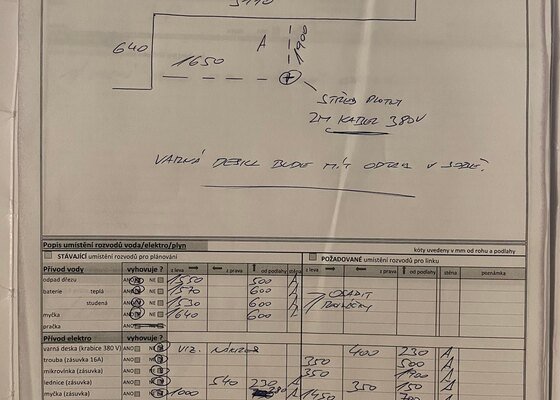 640
A
1900
1650
STŘED PLOTNY
2M KABEL 380V
VARNÁ DESKA BUDE MÍT ODTAH V SOBĚ.
Popis umístění rozvodů voda/elektro/plyn
kóty uvedeny v mm od rohu a podlahy
STÁVAJÍCÍ umístění rozvodů pro plánování
POŽADOVANÉ umístění rozvodů pro linku
Přívod vody vyhovuje ? z leva z prava od podlahy stěna z leva z prava od podlahy stěna poznámka
odpad dřezu ANO NE 1550 500 A
baterie teplá ANO NE 1570 600 A OSADIT
studená ANO NE 1530 600 A
myčka ANO NE 1640 600 A
pračka ANO NE
Přívod elektro vyhovuje ?
varná deska (krabice 380 V) ANO NE VIZ. 400 230 A
trouba (zásuvka 16A) ANO NE 350 500 A
mikrovlnka (zásuvka) ANO NE 350 1900 A
lednice (zásuvka) ANO NE 540 230 A 350 150 A
myčka (zásuvka) ANO NE 1000 A 1450 A